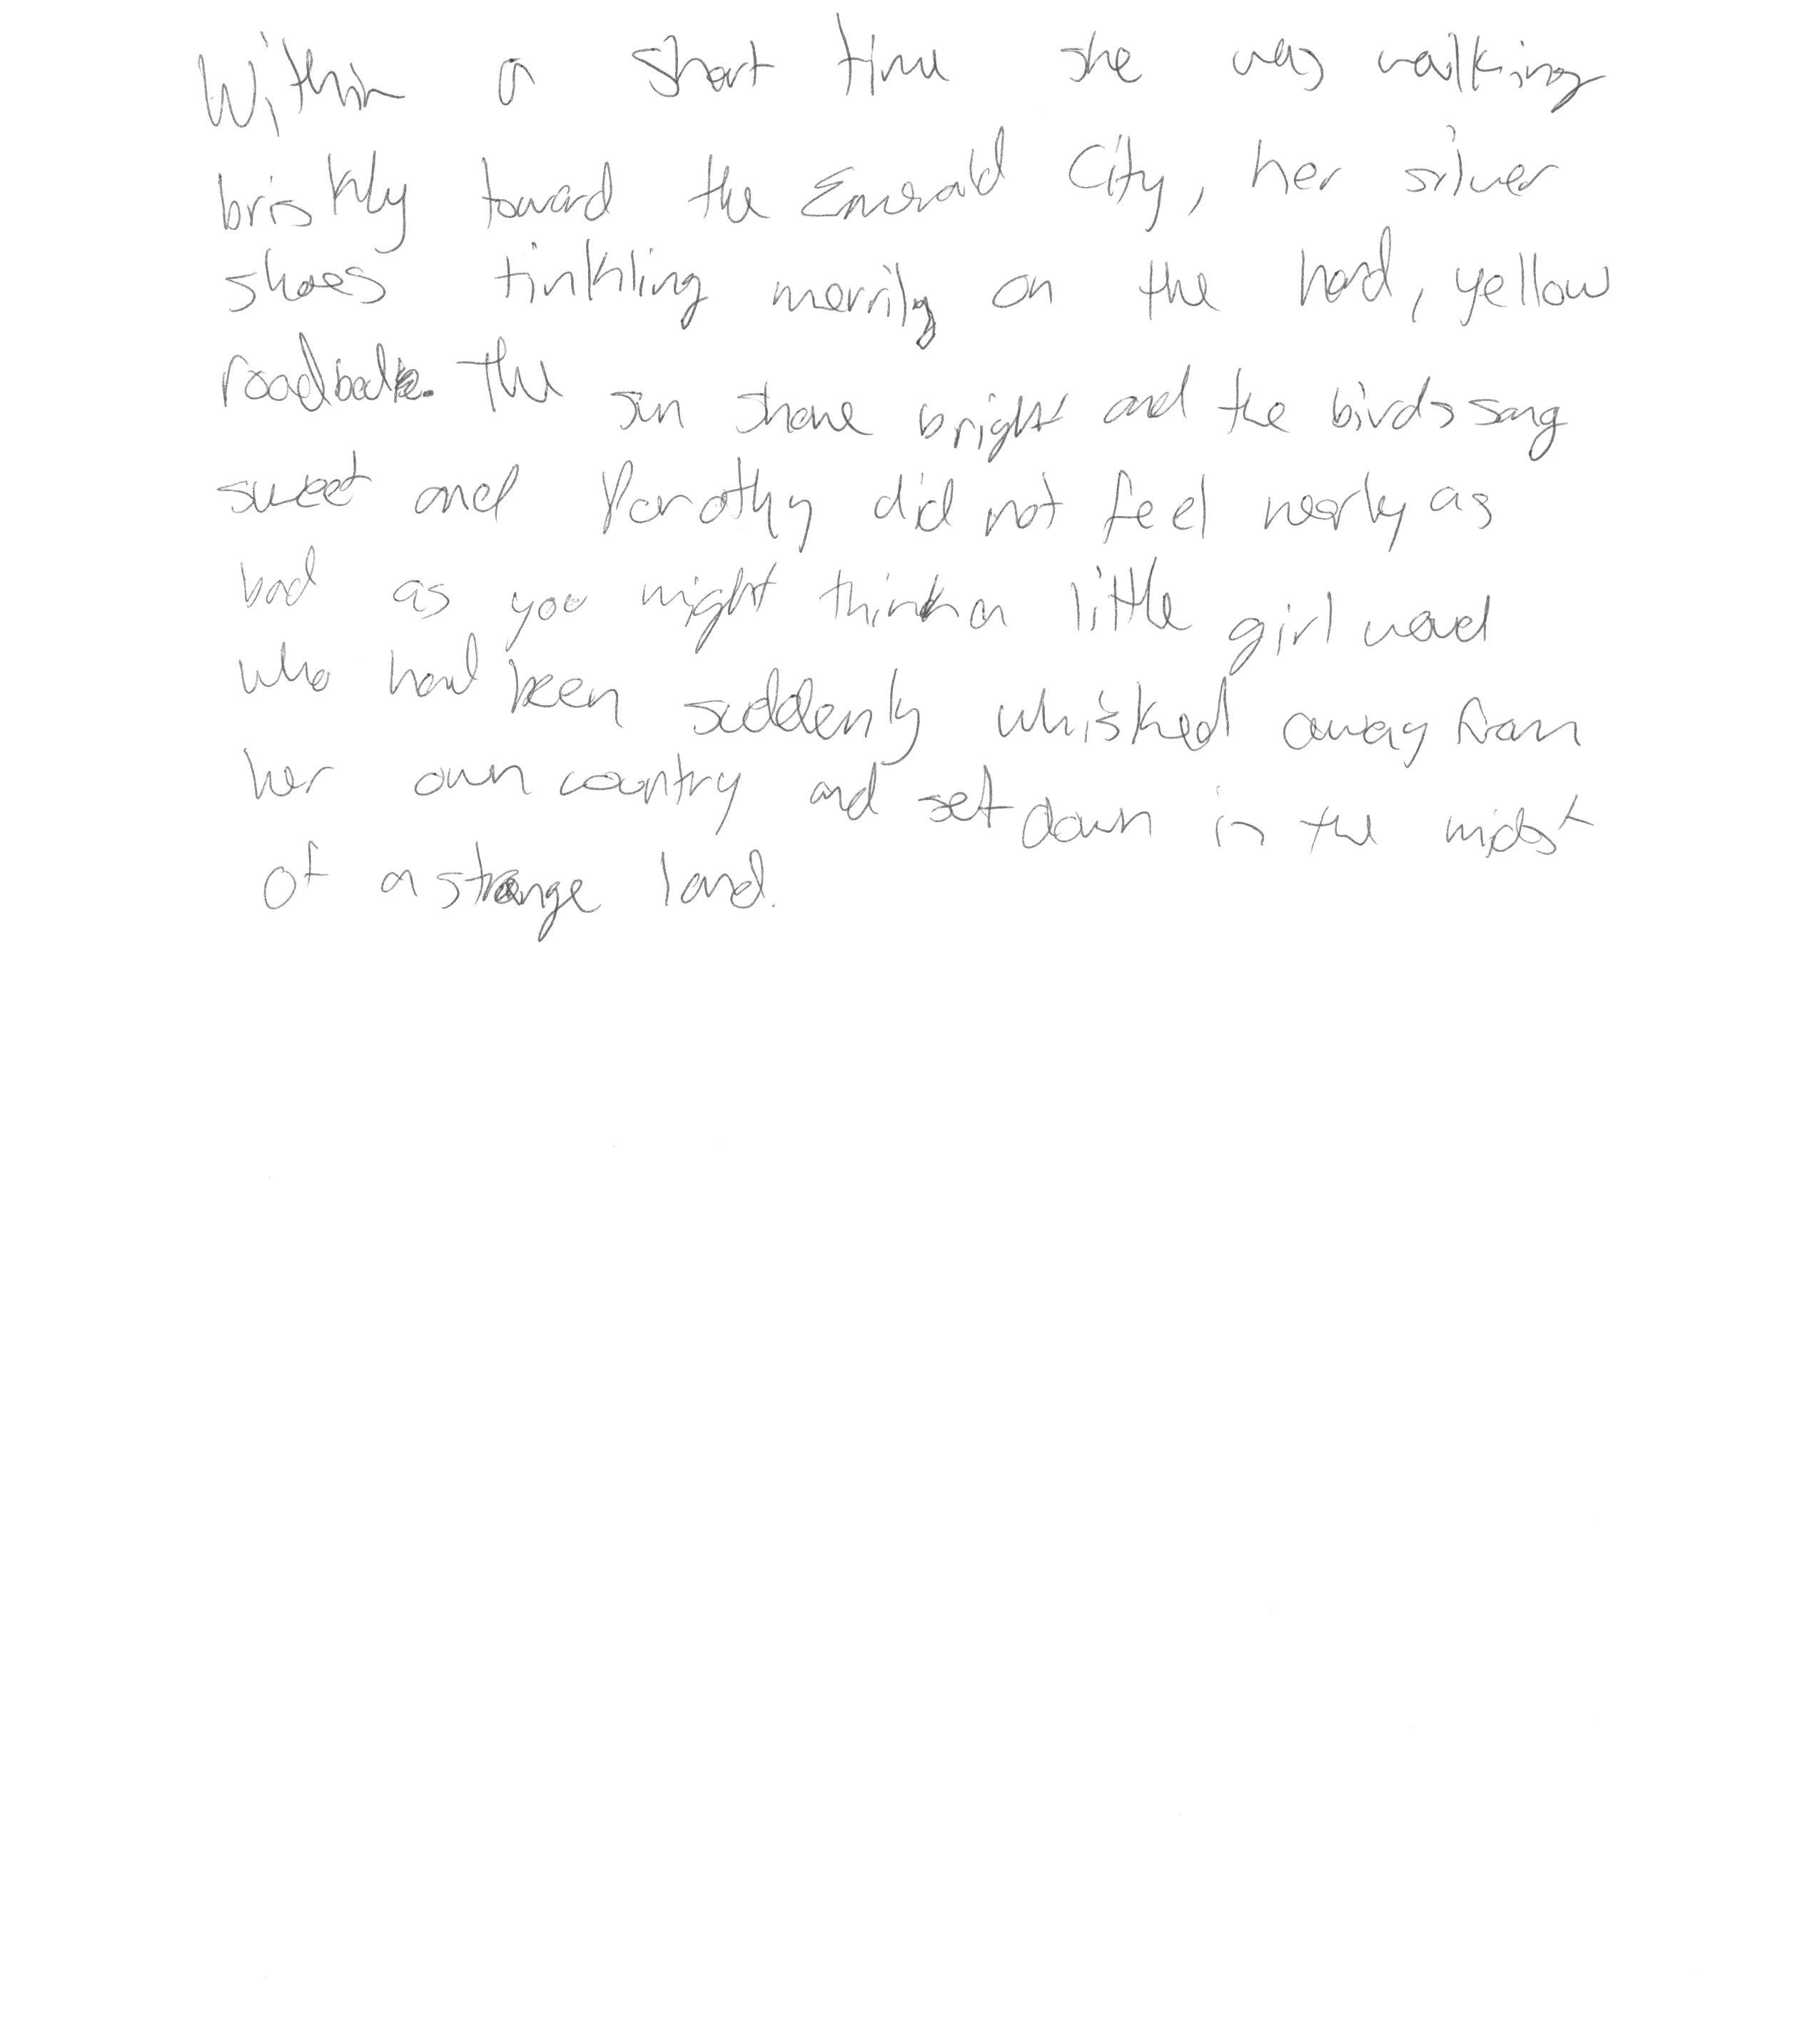 Within a short time she was walking
briskly toward the Emerald City, her silver
shoes tinkling merrily on the hard, yellow
The sun shone bright and the birds sang
sweet and Dorothy did not feel nearly as
bad as you might think a little girl
who had been suddenly whisked away from
her own country and set down in the midst
of a strange land.